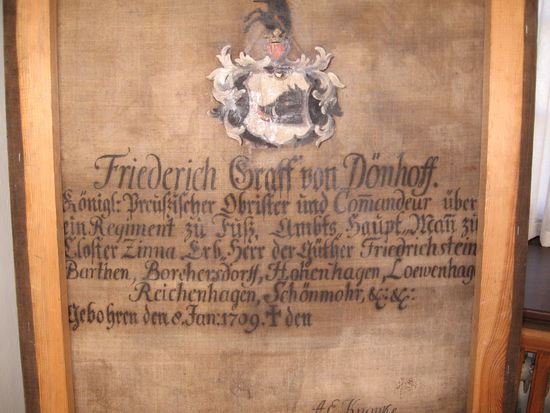 Friederich Graff von Dönhoff.
Königl: Preußischer Obrister und Comandeur über
ein Regiment zu Fuß, Ambts, Haupt, Mañ zu
Closter Zinna, Erb, Herr der Güther Friedrichstein
Barthen, Borchersdorff, Hohenhagen, Loewenhag
Reichenhagen, Schönmohr, &c: &c:
Gebohren den 8. Jan: 1709. ✝ den